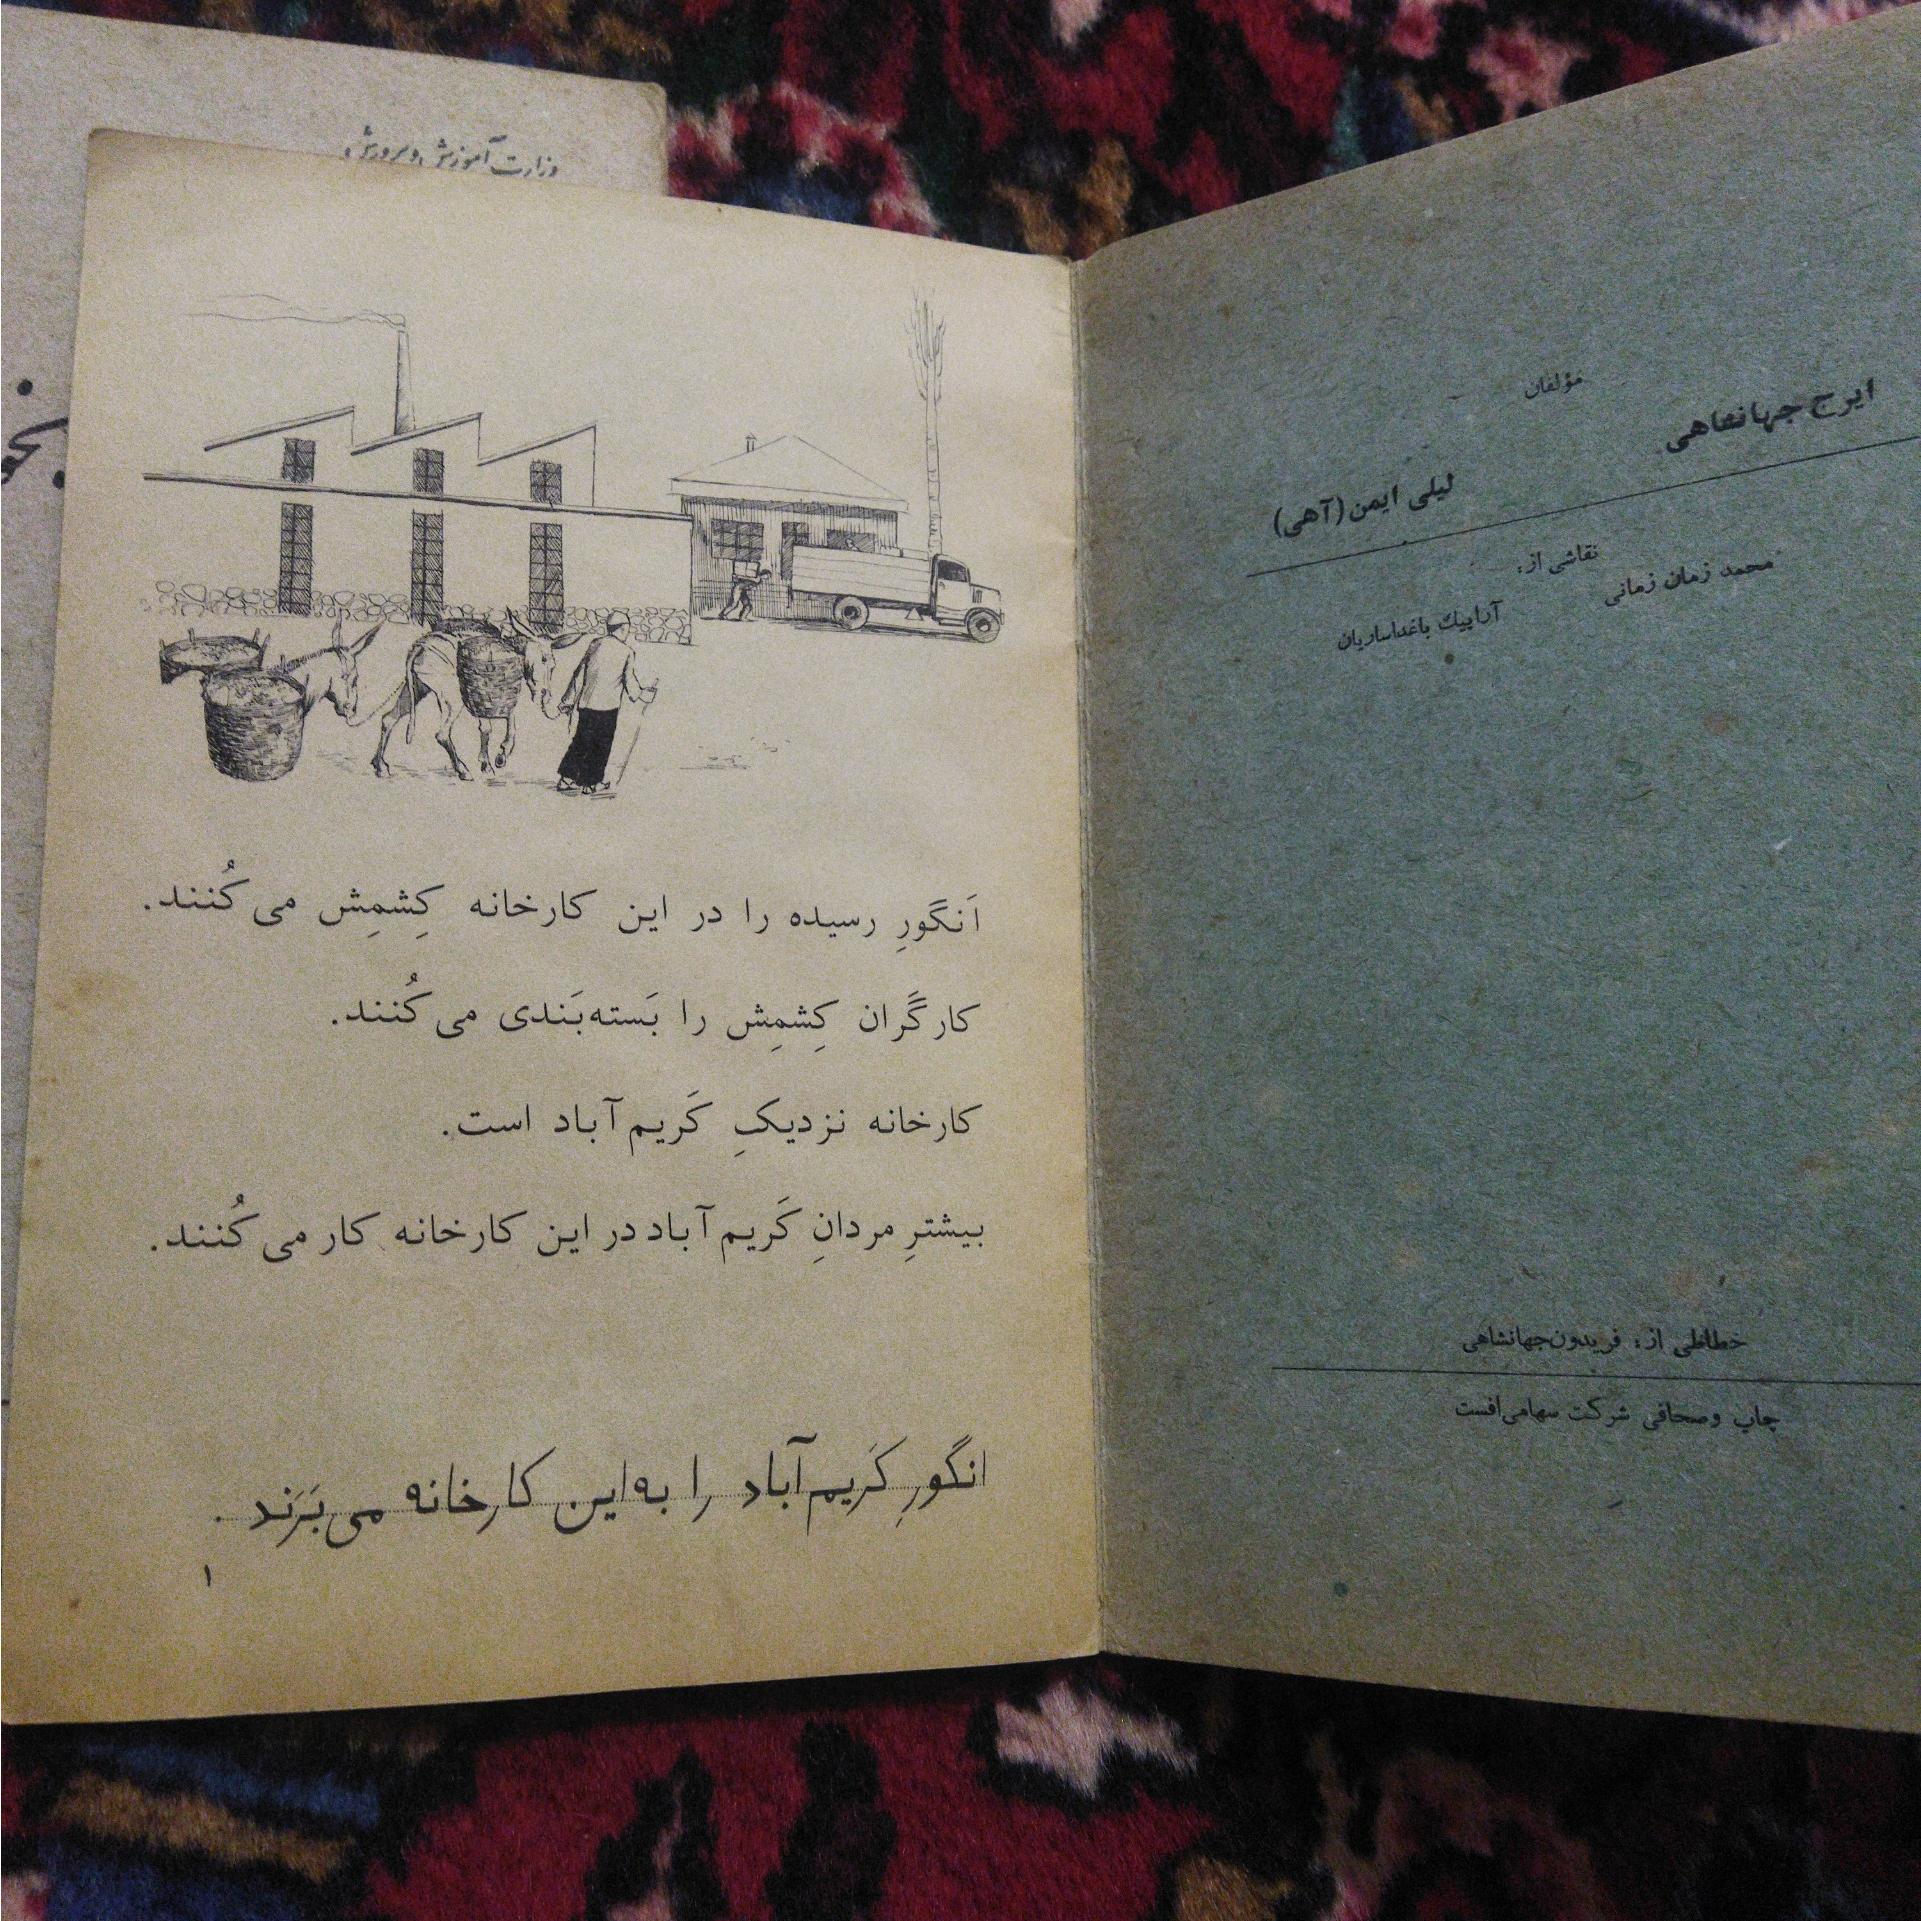 وزارت آموزش و پرورش
اَنگورِ رسیده را در این کارخانه کِشمِش می‌کُنند.
کارگَران کِشمِش را بَسته‌بَندی می‌کُنند.
کارخانه نزدیکِ کَریم‌آباد است.
بیشترِ مردانِ کَریم‌آباد در این کارخانه کار می‌کُنند.
انگورِ کَریم‌آباد را به این کارخانه می‌بَرَند.
۱
مؤلفان
ایرج جهانشاهی
لیلی ایمن (آهی)
نقاشی از:
محمد زمان زمانی
آراپیک باغداساریان
خطاطی از: فریدون جهانشاهی
چاپ وصحافی شرکت سهامی‌افست